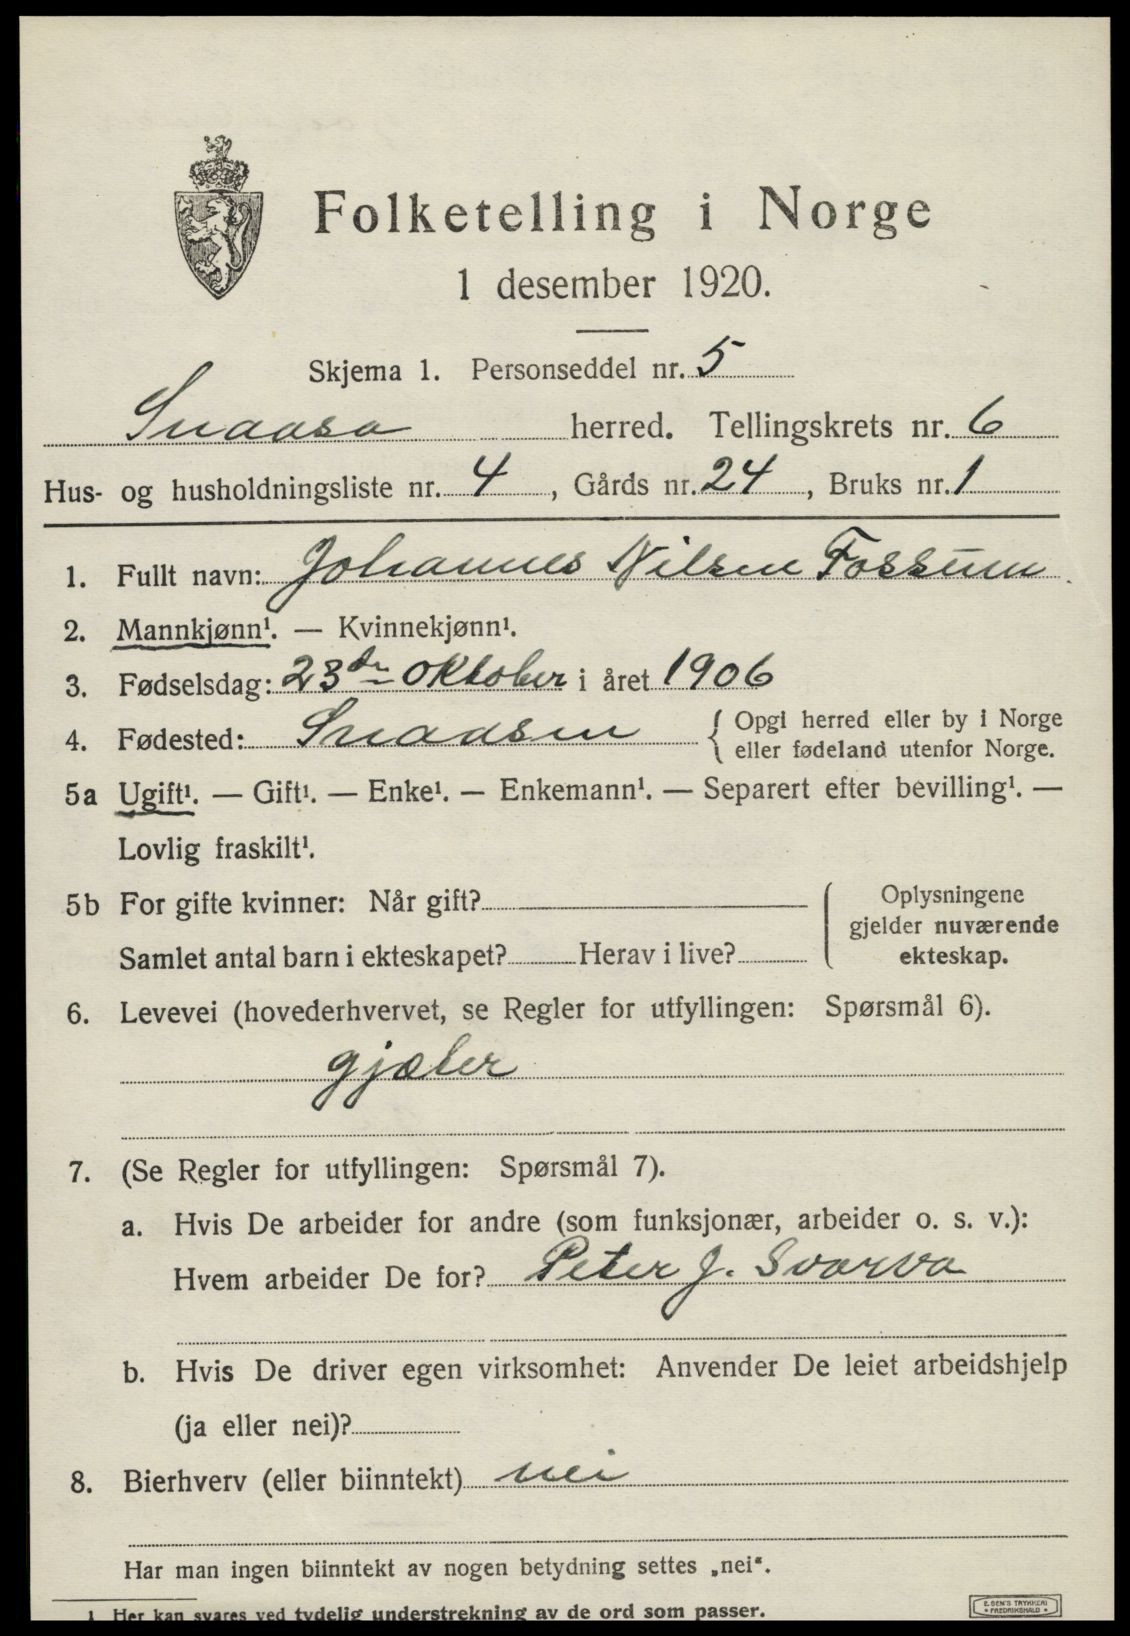 Folketelling i Norge
1 desember 1920.
Skjema 1. Personseddel nr. 5
Snaasa herred. Tellingskrets nr. 6
Hus- og husholdningsliste nr. 4, Gårds nr. 24, Bruks nr. 1
1. Fullt navn: Johannes Nilsen Fossum
2. Mannkjønn¹. — Kvinnekjønn¹.
3. Fødselsdag: 23de oktober i året 1906
4. Fødested: Snaasen { Opgi herred eller by i Norge
eller fødeland utenfor Norge.
5a Ugift¹. — Gift¹. — Enke¹. — Enkemann¹. — Separert efter bevilling¹. —
Lovlig fraskilt¹.
5b For gifte kvinner: Når gift?
Samlet antal barn i ekteskapet? Herav i live?
Oplysningene
gjelder nuværende
ekteskap.
6. Levevei (hovederhvervet, se Regler for utfyllingen: Spørsmål 6).
gjæter
7. (Se Regler for utfyllingen: Spørsmål 7).
a. Hvis De arbeider for andre (som funksjonær, arbeider o. s. v.):
Hvem arbeider De for? Peter J. Svarva
b. Hvis De driver egen virksomhet: Anvender De leiet arbeidshjelp
(ja eller nei)?
8. Bierhverv (eller biinntekt) nei
Har man ingen biinntekt av nogen betydning settes „nei“.
1 Her kan svares ved tydelig understrekning av de ord som passer.
TRYKKERI
FREDRIKSHALD